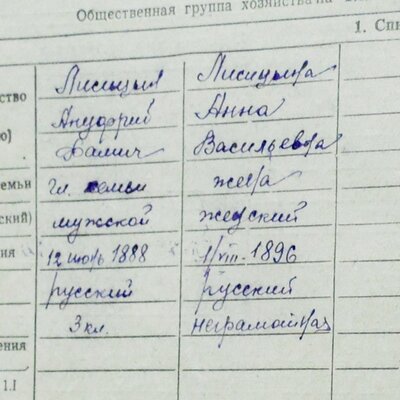 Общественная группа хозяйства на
1. Спи
ство
ю)
емьи
ский)
ия
ения
1.I
Лисицын Лисицына
Ануфрий Анна
Васильевна
гл. семьи жена
мужской женский
12 июнь 1888 1/VIII-1896
русский русский
3 кл. неграмотная